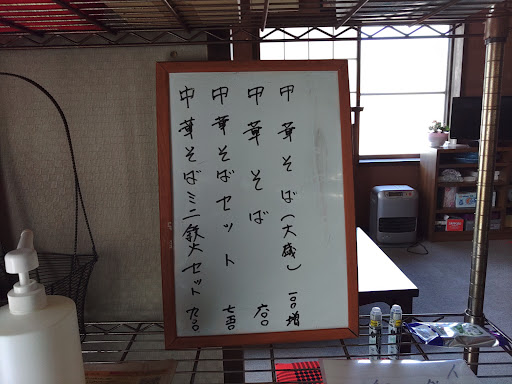 中華そば(大盛) 一〇〇増
中華そば 六〇〇
中華そばセット 七五〇
中華そばミニ鉄火セット 九〇〇